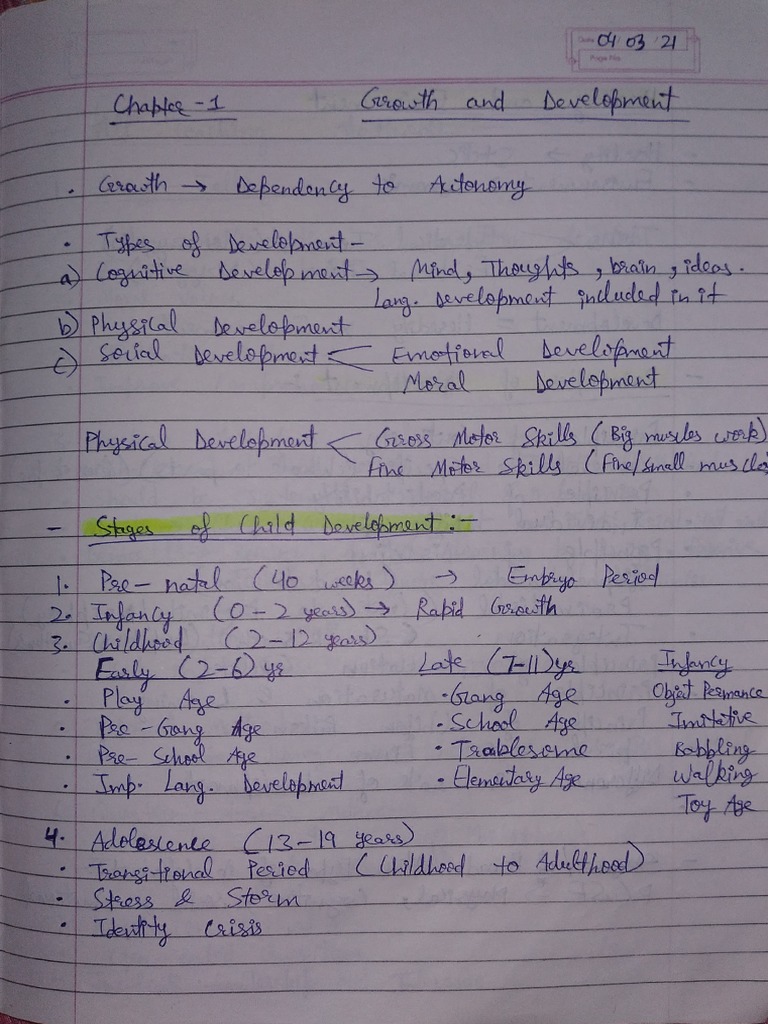 Date 04 03 21
Page No.
Chapter-1 Growth and Development
• Growth → Dependency to Autonomy
• Types of Development -
a) Cognitive Development → Mind, Thoughts, brain, ideas.
Lang. Development included in it
b) Physical Development
c) Social Development < Emotional Development
Moral Development
Physical Development < Gross Motor Skills (Big muscles work)
Fine Motor Skills (Fine/small muscles
- Stages of Child Development :-
1. Pre-natal (40 weeks) → Embryo Period
2. Infancy (0-2 years) → Rapid Growth
3. Childhood (2-12 years)
Early (2-6) yr Late (7-11) yr Infancy
• Play Age • Gang Age Object Permance
• Pre-Gang Age • School Age Imitative
• Pre-School Age • Troublesome Babbling
• Imp. Lang. Development • Elementary Age Walking
Toy Age
4. Adolescence (13-19 years)
• Transitional Period (Childhood to Adulthood)
• Stress & Storm
• Identity Crisis